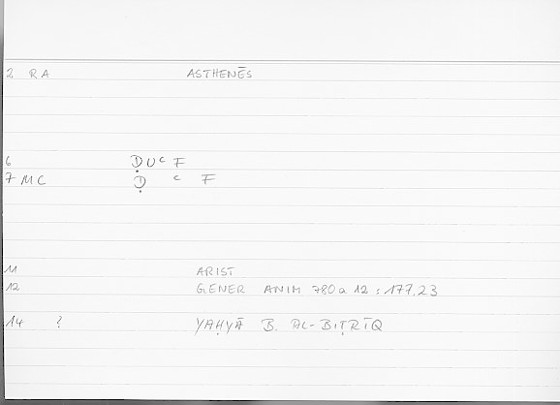 2 RA ASTHENĒS
6 ḌUᶜF
7 MC Ḍ ᶜ F
11 ARIST
12 GENER ANIM 780a 12 : 177,23
14 ? YAḤYĀ B. AL-BIṬRĪQ